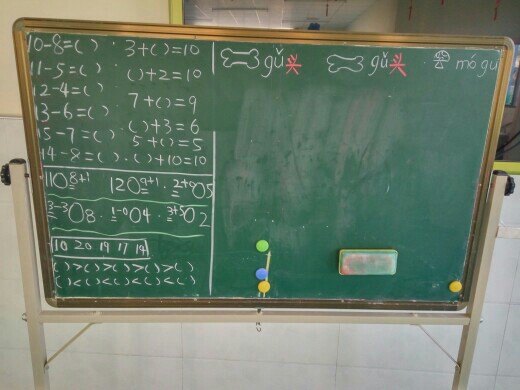 10-8=( ) 3+( )=10
11-5=( ) ( )+2=10
12-4=( )
13-6=( ) 7+( )=9
15-7=( ) ( )+3=6
5+( )=5
14-8=( ) ( )+10=10
11○8+1 12○9+1 2+9○5
3-3○8 1-0○4 3+5○2
10 20 19 17 14
( )>( )>( )>( )>( )
( )<( )<( )<( )<( )
gǔ头 gǔ头 mó gu